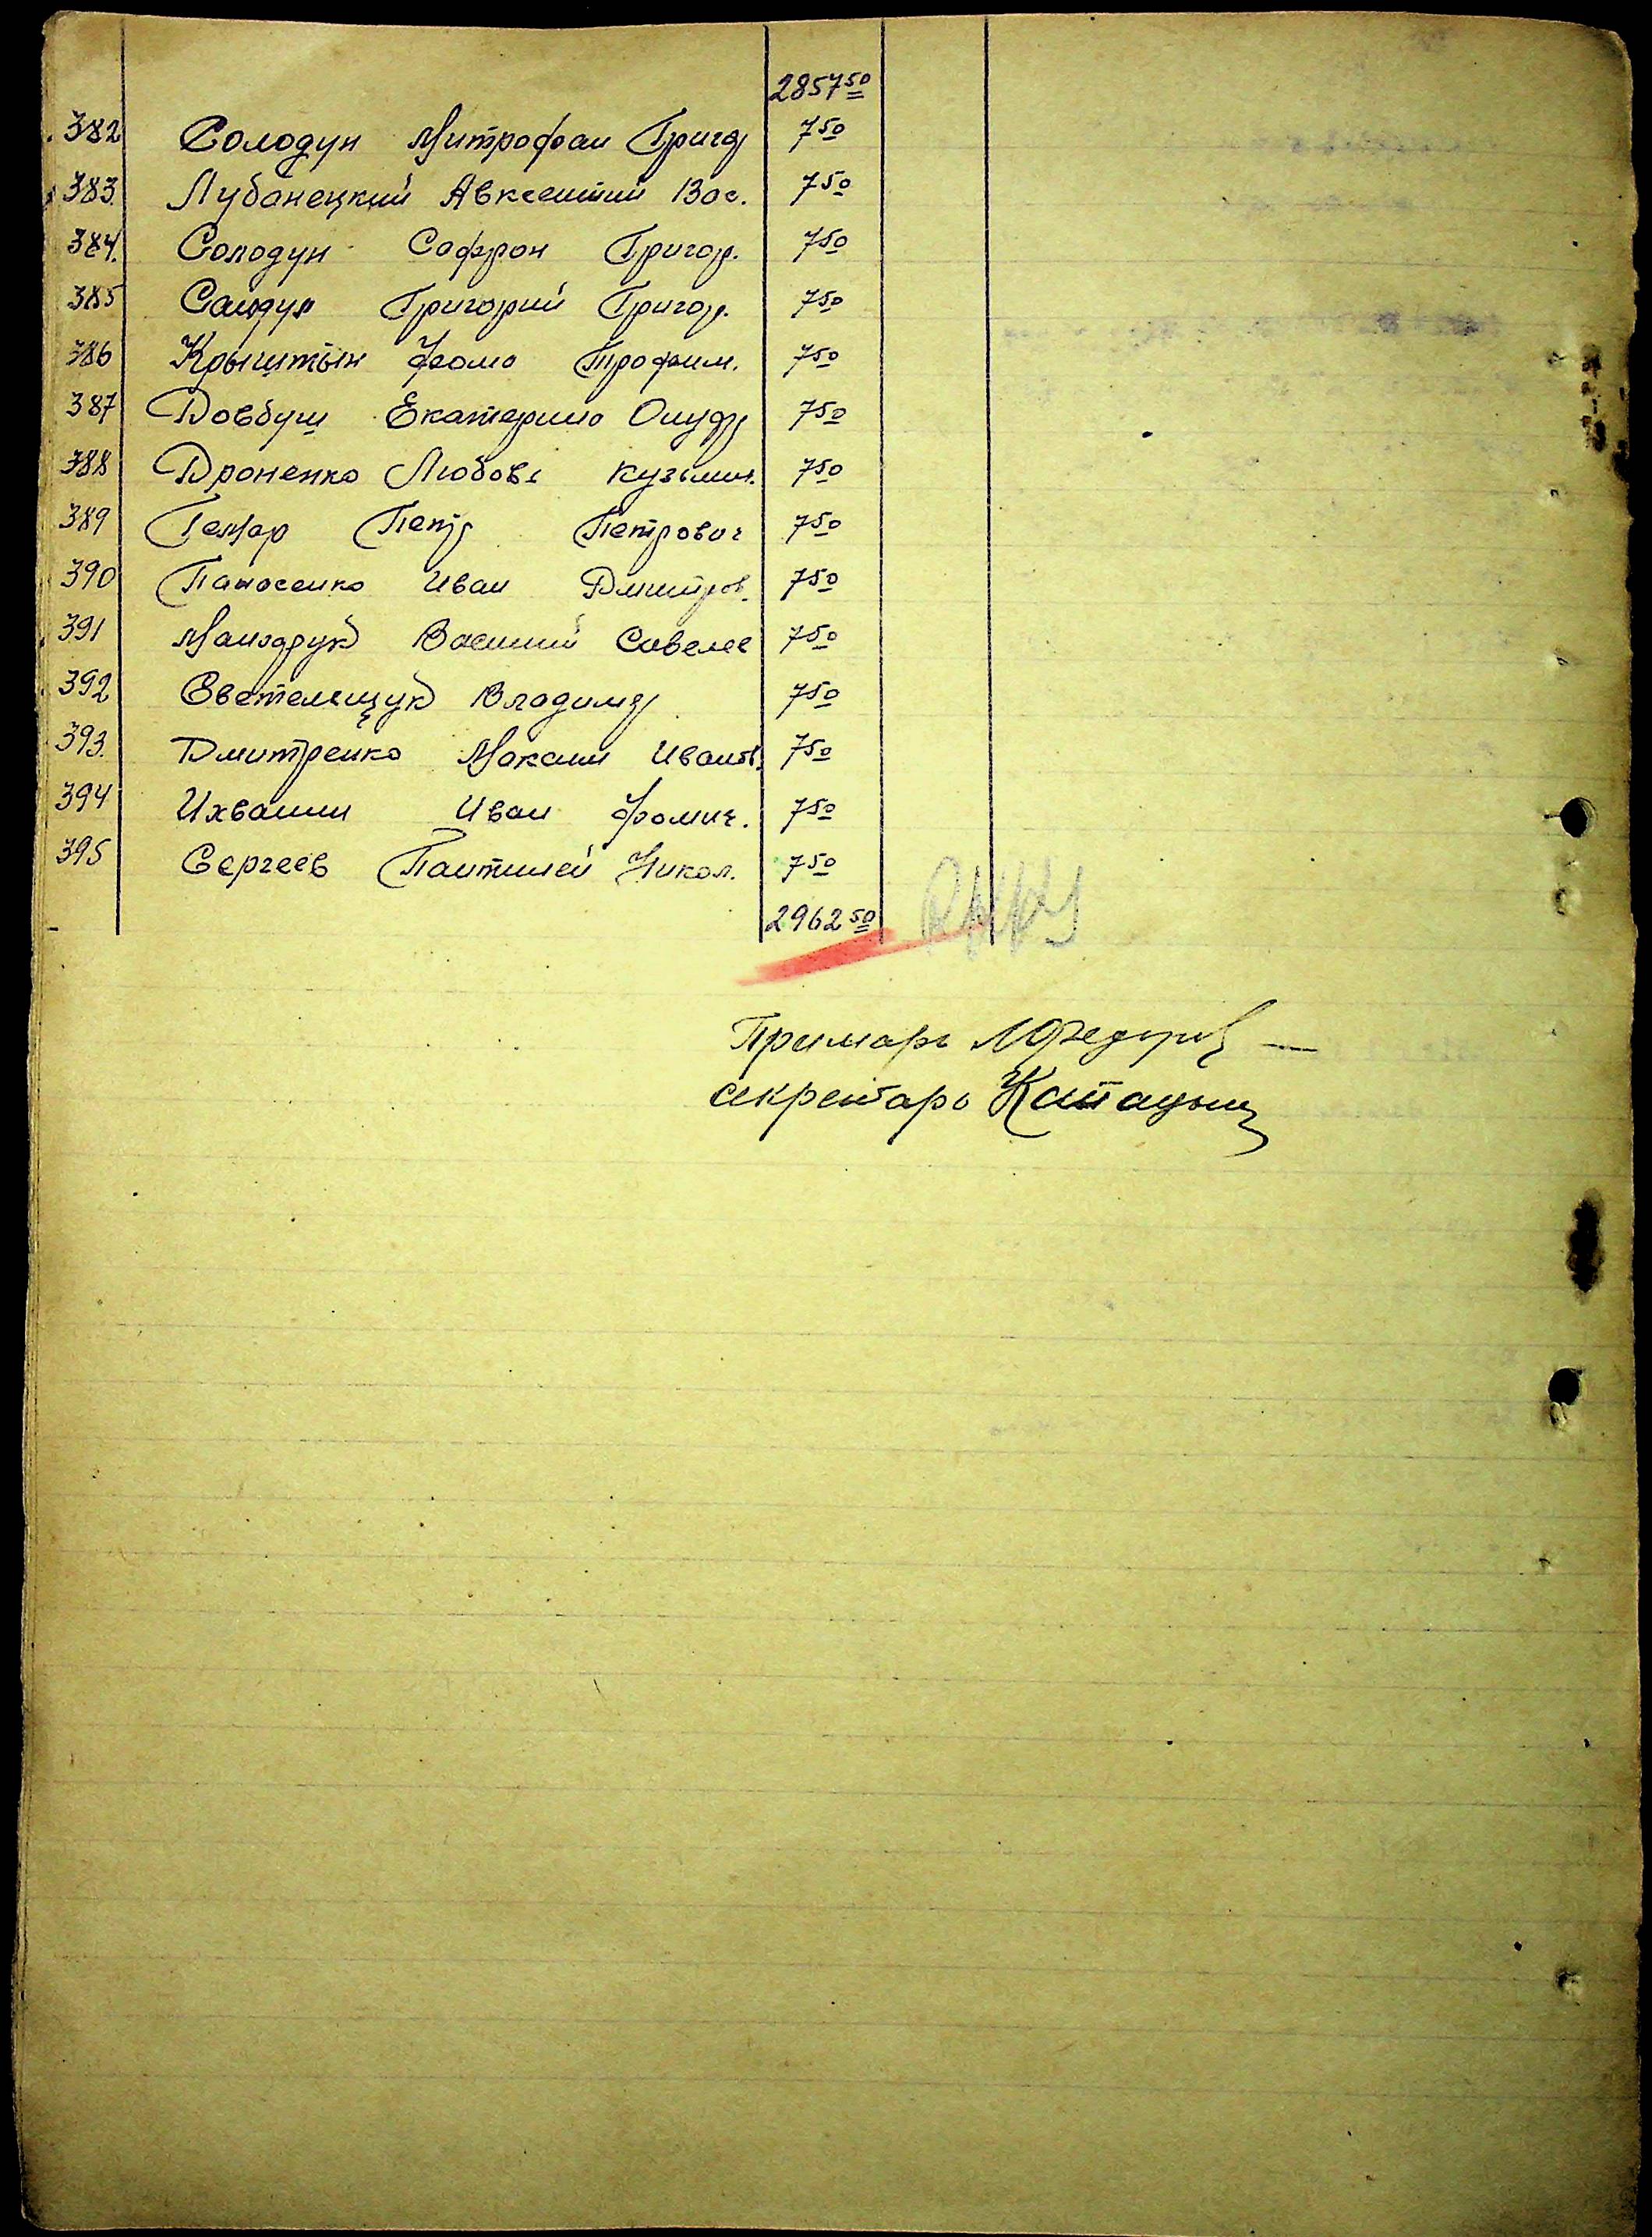 2857 50
382 Солодун Митрофан Григор
383. Лубанецкий Авксентий Вас. 7 50
384. Солодун Софрон Григор. 7 50
385 Солодун Григорий Григор. 7 50
386 Крыштын Фома Трофим. 7 50
387 Довбуш Екатерина 7 50
388 Дроненко Любовь Кузьмин. 7 50
389 Гемар Петр Петрович 7 50
390 Панасенко Иван Дмитров. 7 50
391 Мандрук Василий Савелев 7 50
392 Светельщук Владимир 7 50
393. Дмитренко Максим Иванов. 7 50
394 Ихванин Иван Фомич. 7 50
395 Сергеев Пантилей Никол. 7 50
2962 50
Примарь
секретарь